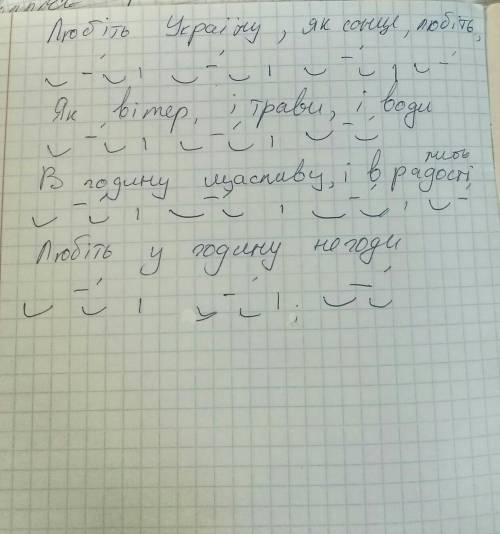 Любіть Україну, як сонце, любіть,
Як вітер, і трави, і води
В годину щасливу, і в радості мить
Любіть у годину негоди